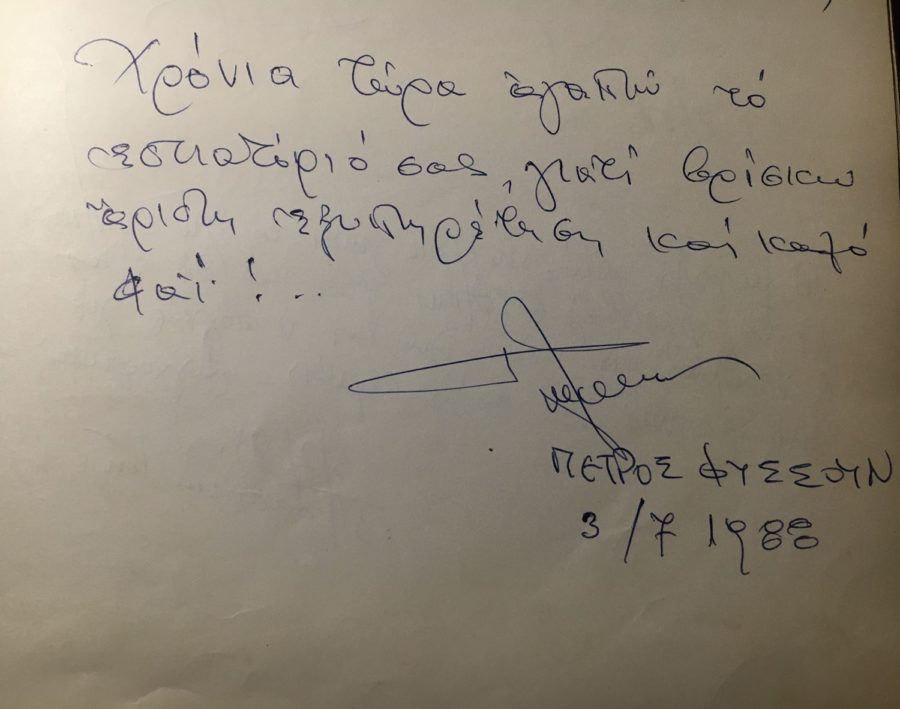 Χρόνια τώρα ἀγαπῶ τό
ἑστιατόριό σας, γιατί βρίσκω
ἄριστη ἐξυπηρέτηση καί καλό
φαΐ! ...
ΠΕΤΡΟΣ ΦΥΣΣΟΥΝ
3/7 1988